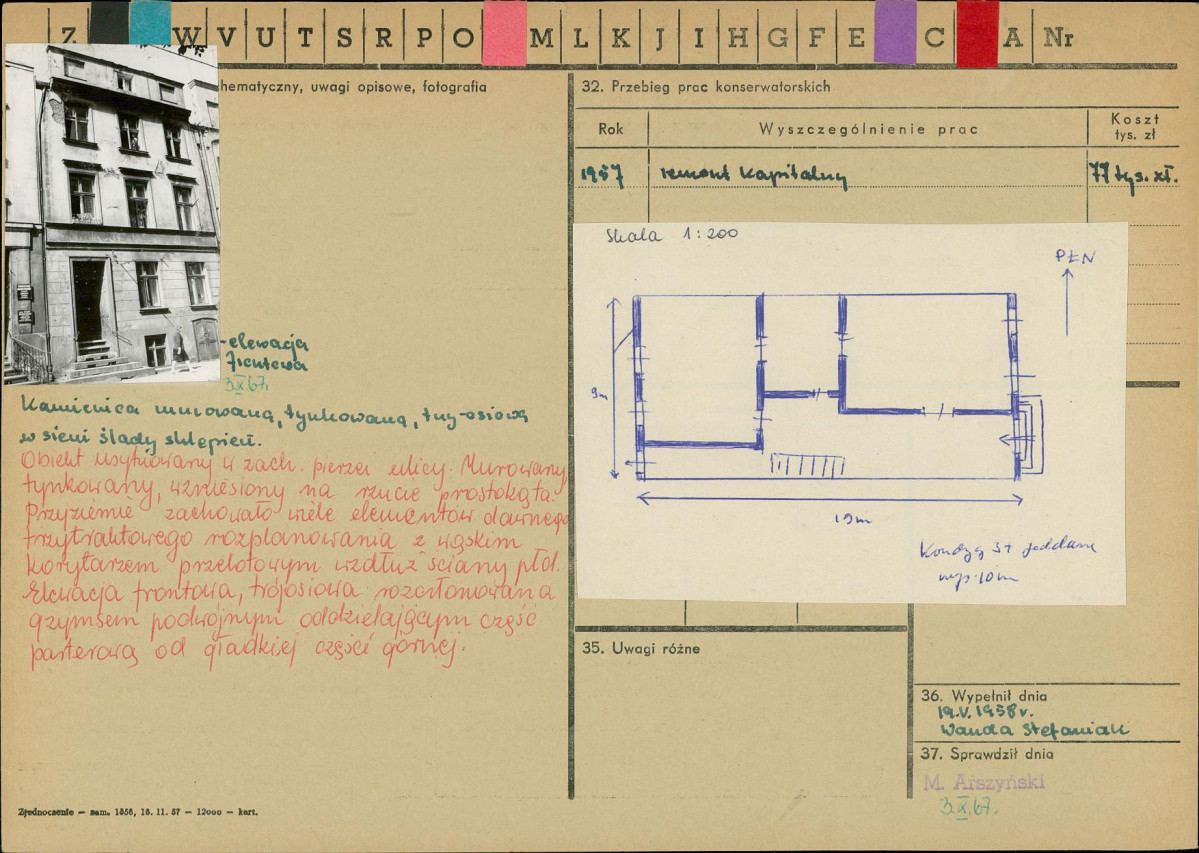 Z W V U T S R P O M L K J I H G F E C A Nr
hematyczny, uwagi opisowe, fotografia
- elewacja
frontowa
3.X.67.
Kamienica murowana, tynkowana, trzy-osiowa
w sieni ślady sklepień.
Obiekt usytuowany w zach. pierzei ulicy. Murowany,
tynkowany, wzniesiony na rzucie prostokąta.
Przyziemie zachowało wiele elementów dawnego
trzytraktowego rozplanowania z wąskim
korytarzem przelotowym wzdłuż ściany płd.
Elewacja frontowa, trójosiowa rozczłonowana
gzymsem podwójnym oddzielającym część
parterową od gładkiej części górnej.
Zjednoczenie — zam. 1856, 16. 11. 57 — 12000 — kart.
32. Przebieg prac konserwatorskich
Rok Wyszczególnienie prac Koszt tys. zł
1957 remont kapitalny 77 tys. zł.
Skala 1:200
PŁN
9m
19m
35. Uwagi różne
36. Wypełnił dnia
19.V.1958 r.
Wanda Stefaniak
37. Sprawdził dnia
M. Arszyński
3.X.67.